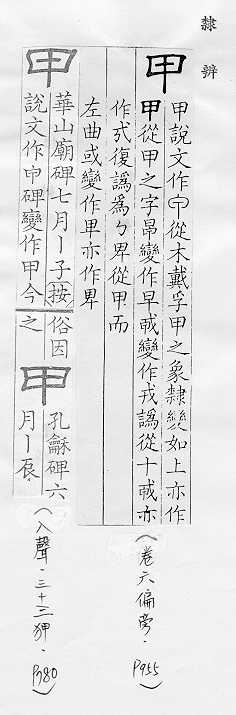 隸辨
甲 甲說文作𠇚從木戴孚甲之象隸變如上亦作
甲從甲之字昂變作早戟變作戎譌從十戟亦
作弍復譌爲ㄅ卑從甲而
左曲或變作𤰞亦作畀
甲 華山廟碑七月丨子按
說文作𠇚碑變作甲今
俗因
之
甲 孔龢碑六
月丨辰
(卷六偏旁. P955)
(入聲.三十三狎. P780)